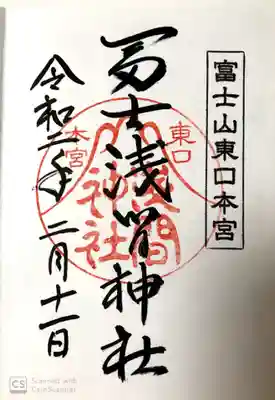 富士山東口本宮
冨士浅间神社
東口
本宮
浅間
神社
令和二年 二月十一日
CS Scanned with
CamScanner